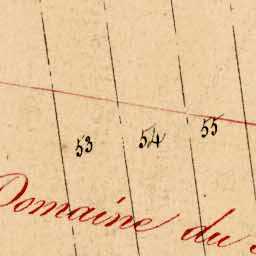 53 54 55
Domaine du